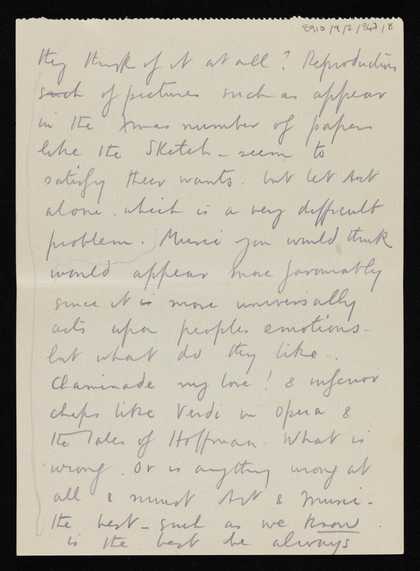 8910/9/2/842/8
they think of it at all? Reproductions
such of pictures such as appear
in the Xmas number of papers
like the Sketch - seem to
satisfy their wants. but let Art
alone. which is a very difficult
problem. Music you would think
would appear more favourably
since it is more universally
acts upon peoples emotions -
but what do they like -.
Chaminade my love! & inferior
chaps like Verdi in Opera &
the Tales of Hoffman. What is
wrong. Or is anything wrong at
all & must Art & Music -
the best - such as we know
is the best be always